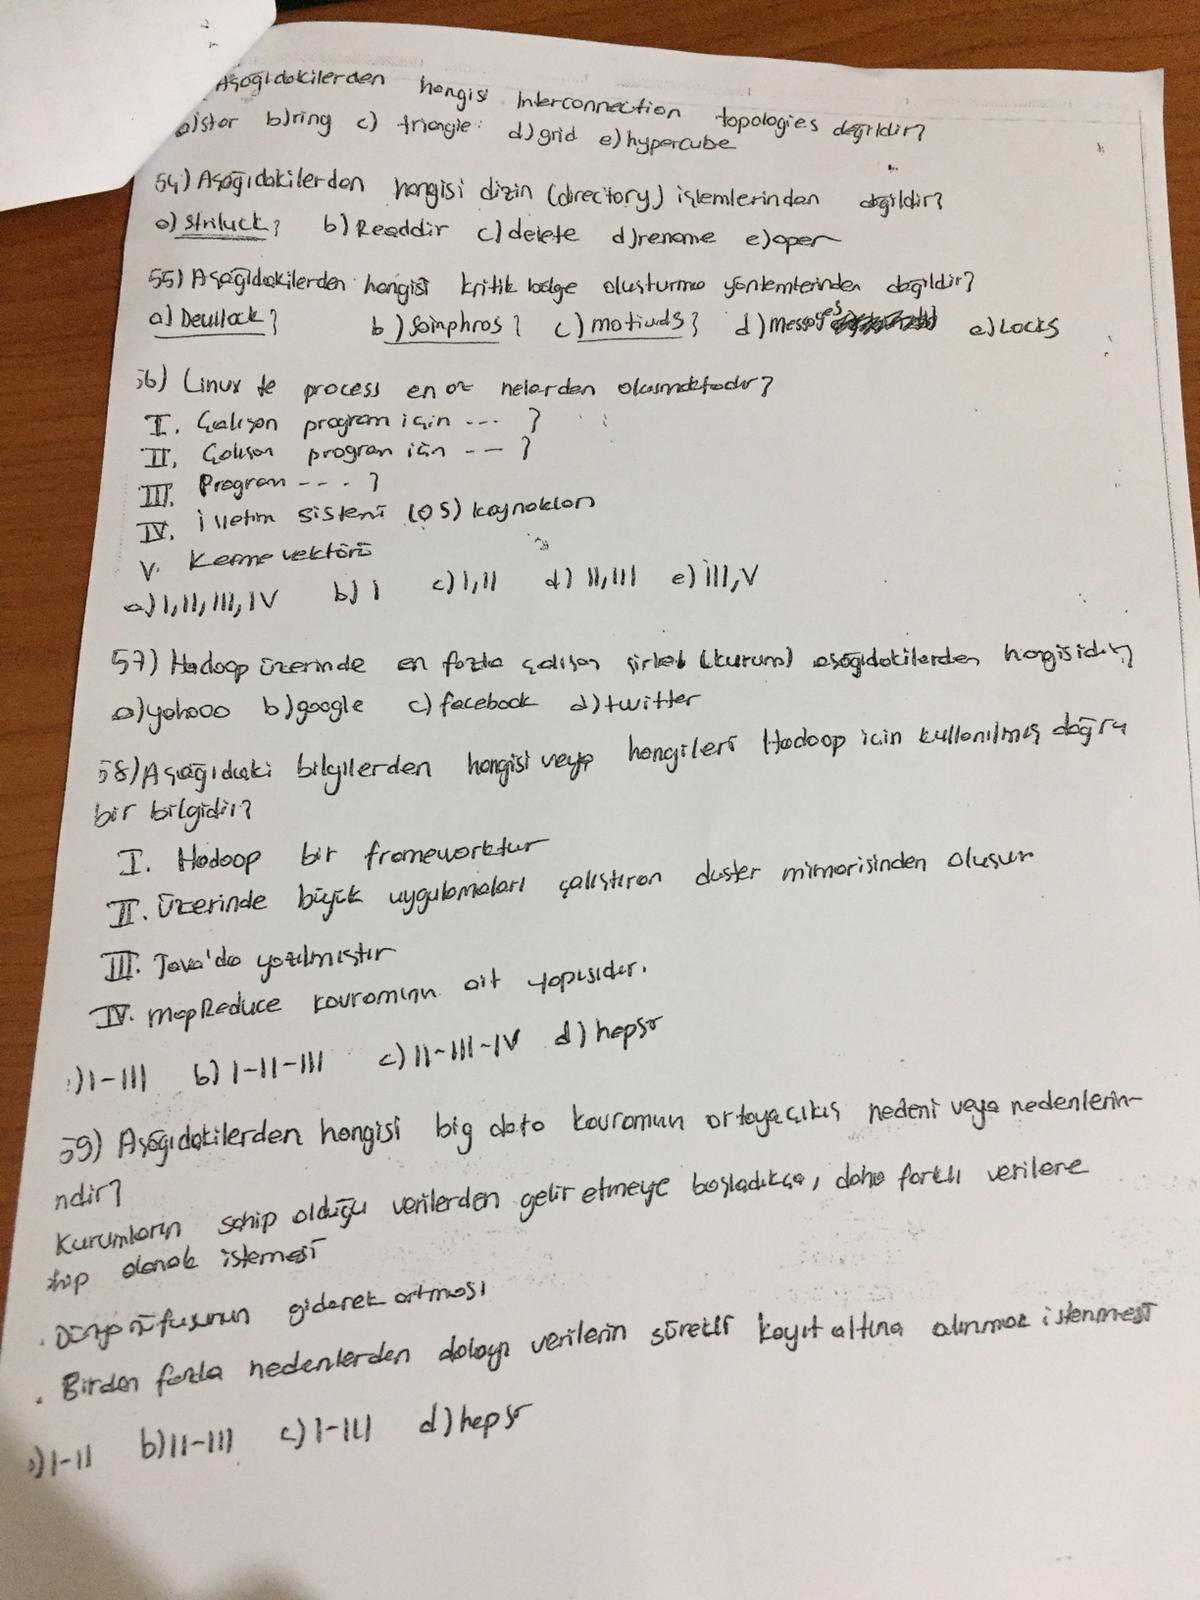 Aşağıdakilerden hangisi Interconnection topologies değildir?
a)star b)ring c) triangle d)grid e)hypercube
54) Aşağıdakilerden hangisi dizin (directory) işlemlerinden değildir?
a) striluck? b) Readdir c) delete d)rename e)open
55) Aşağıdakilerden hangisi kritik bölge oluşturma yöntemlerinden değildir?
a) Deullock? b) Somphros? c) motiuds? d) Messages e) Locks
56) Linux te process en az nelerden oluşmaktadır?
I. Çalışan program için --- ?
II. Çalışan program için -- ?
III. Program --- . ?
IV. İşletim sistemi (OS) kaynakları
V. Kesme vektörü
a) I, II, III, IV b) I c) I, II d) II, III e) III, V
57) Hadoop üzerinde en fazla çalışan şirket (kurum) aşağıdakilerden hangisidir?
a)yahooo b)google c) facebook d)twitter
58) Aşağıdaki bilgilerden hangisi veya hangileri Hadoop için kullanılmış doğru
bir bilgidir?
I. Hadoop bir frameworktur
II. Üzerinde büyük uygulamaları çalıştıran cluster mimarisinden oluşur
III. Java'da yazılmıştır
IV. MapReduce kavramının ait yapısıdır.
) I-III b) I-II-III c) II-III-IV d) hepsi
59) Aşağıdakilerden hangisi big data kavramın ortaya çıkış nedeni veya nedenlerin-
ndir?
Kurumların sahip olduğu verilerden gelir etmeye başladıkça, daha farklı verilere
hip olarak istemesi
. Dünya nüfusunun giderek artması
. Birden fazla nedenlerden dolayı verilerin sürekli kayıt altına alınmak istenmesi
) I-II b) II-III c) I-III d) hepsi